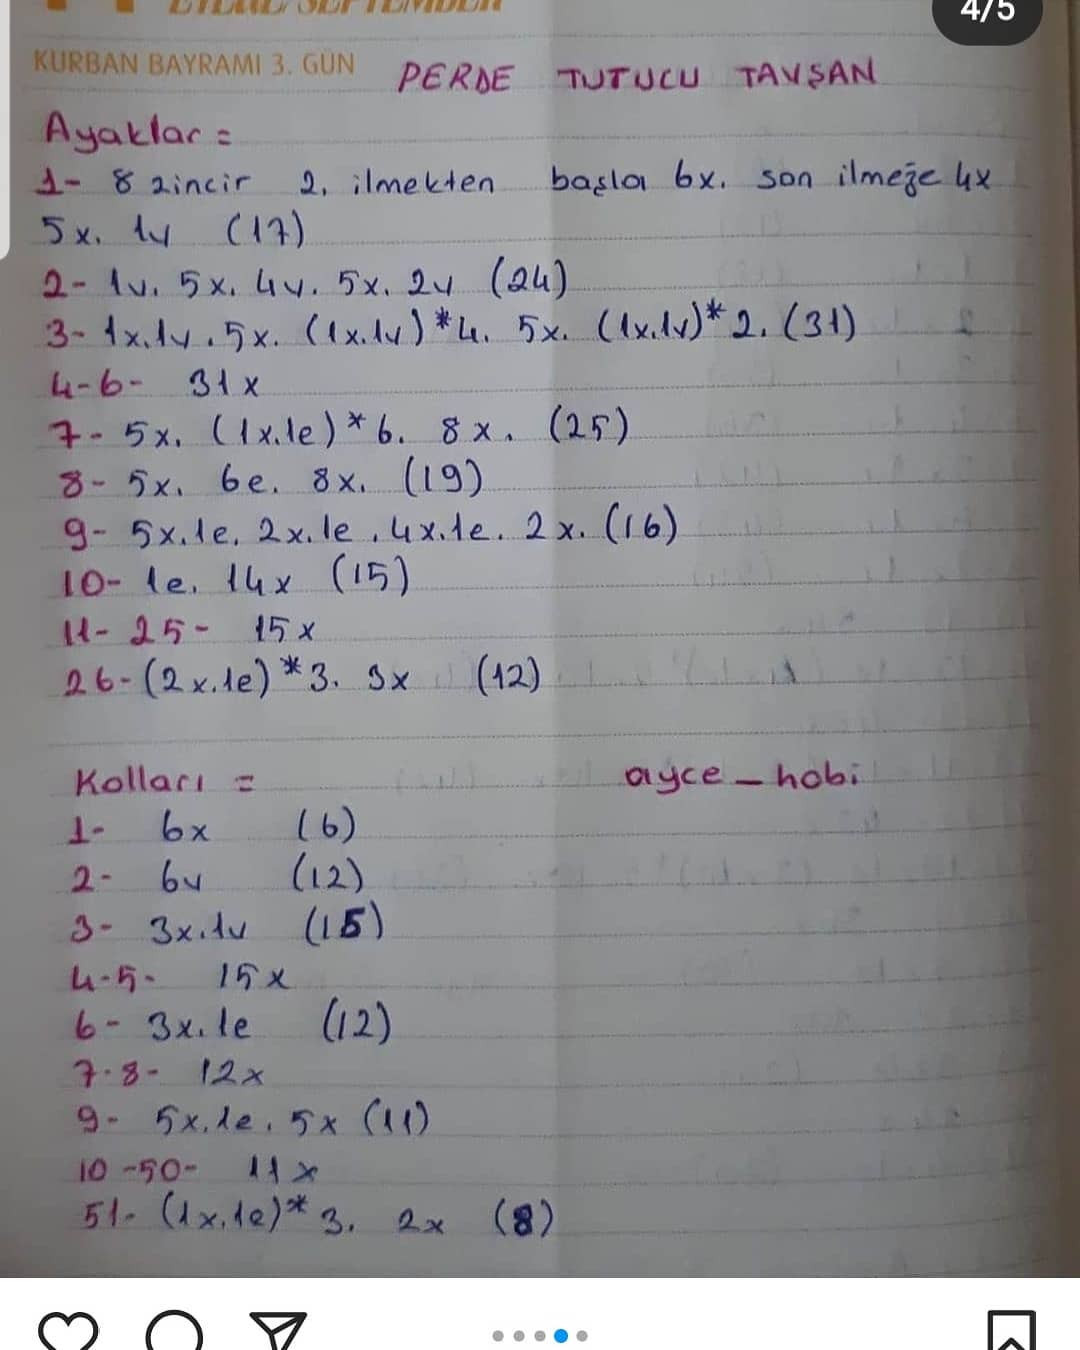 EYLÜL/SEPTEMBER
4/5
KURBAN BAYRAMI 3. GÜN
PERDE TUTUCU TAVŞAN
Ayaklar =
1- 8 zincir 2. ilmekten başla 6x. son ilmeğe 4x
5x. 1v (17)
2- 1v. 5x. 4v. 5x. 2v (24)
3- 1x.1v. 5x. (1x.1v)*4. 5x. (1x.1v)*2. (31)
4-6- 31x
7- 5x. (1x.1e)*6. 8x. (25)
8- 5x. 6e. 8x. (19)
9- 5x.1e. 2x.1e. 4x.1e. 2x. (16)
10- 1e. 14x (15)
11-25- 15x
26-(2x.1e)*3. 3x (12)
Kolları =
ayce_hobi
1- 6x (6)
2- 6v (12)
3- 3x.1v (15)
4-5- 15x
6- 3x.1e (12)
7-8- 12x
9- 5x.1e. 5x (11)
10-50- 11x
51- (1x.1e)*3. 2x (8)